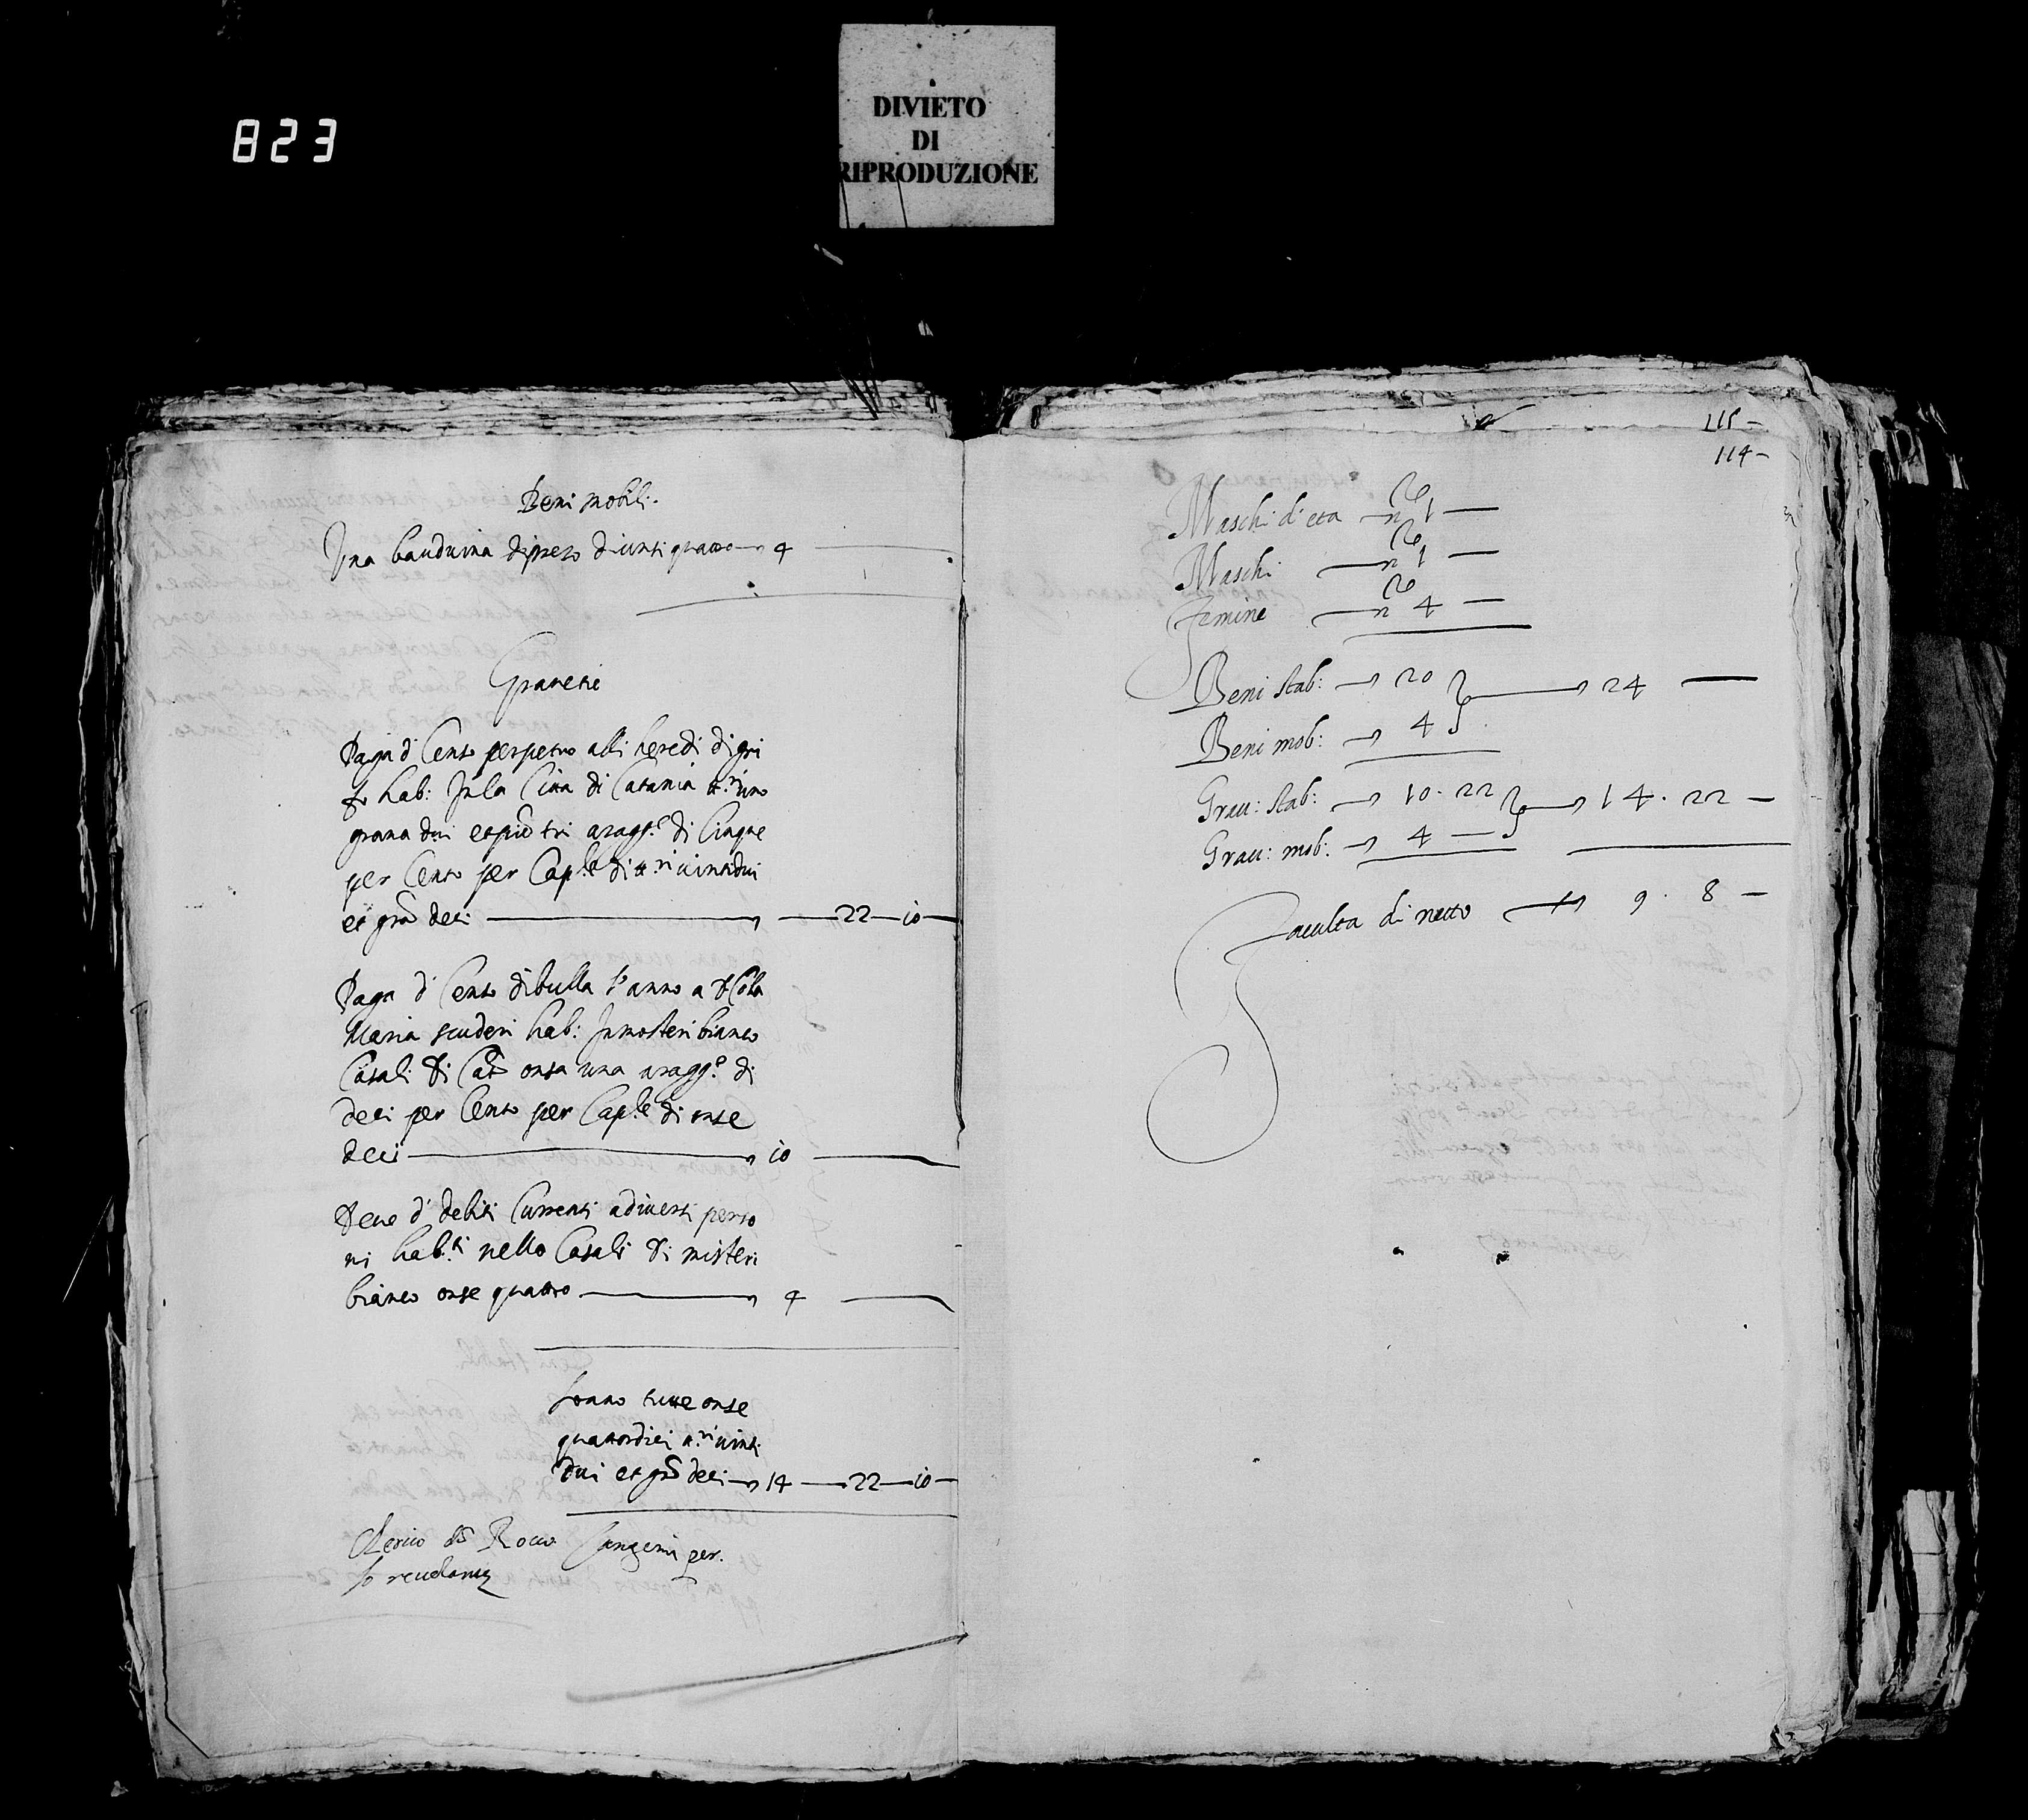 823
DIVIETO
DI
RIPRODUZIONE
Beni mobili.
Una bauduina di prezo di unsi quattro 4 —
Gravetie
Paga d' Censo perpetuo alli heredi di
hab: In la Cita di Catania tt.ri uno
grana dui et piu tri aragg.e di Cinque
per Cento per Cap.le di tt.ri vintidui
et gra deci — 22 — 10 —
Paga d' Censo di bulla l'anno a Cola
Maria scuderi hab: In mosteri bianco
Casali di Cat.a onza una aragg.e di
deci per Cento per Cap.le di onse
deci — 10 —
Deve d' debiti Currenti a diversi perso
ni hab.ti nello Casali di misteri
bianco onse quattro — 4 —
sonno tutte onse
quattordici tt.ri vinti
dui et gra deci — 14 — 22 — 10 —
Clerico Rocco per
lo revelante
115 —
114 —
Maschi d' eta — n 1 —
Maschi — n 1 —
Femine — n 4 —
Beni stab: — 20 — 24 —
Beni mob: — 4
Grau: stab: — 10 . 22 — 14 . 22 —
Grau: mob: — 4 —
Faculta di netto — 9 . 8 —